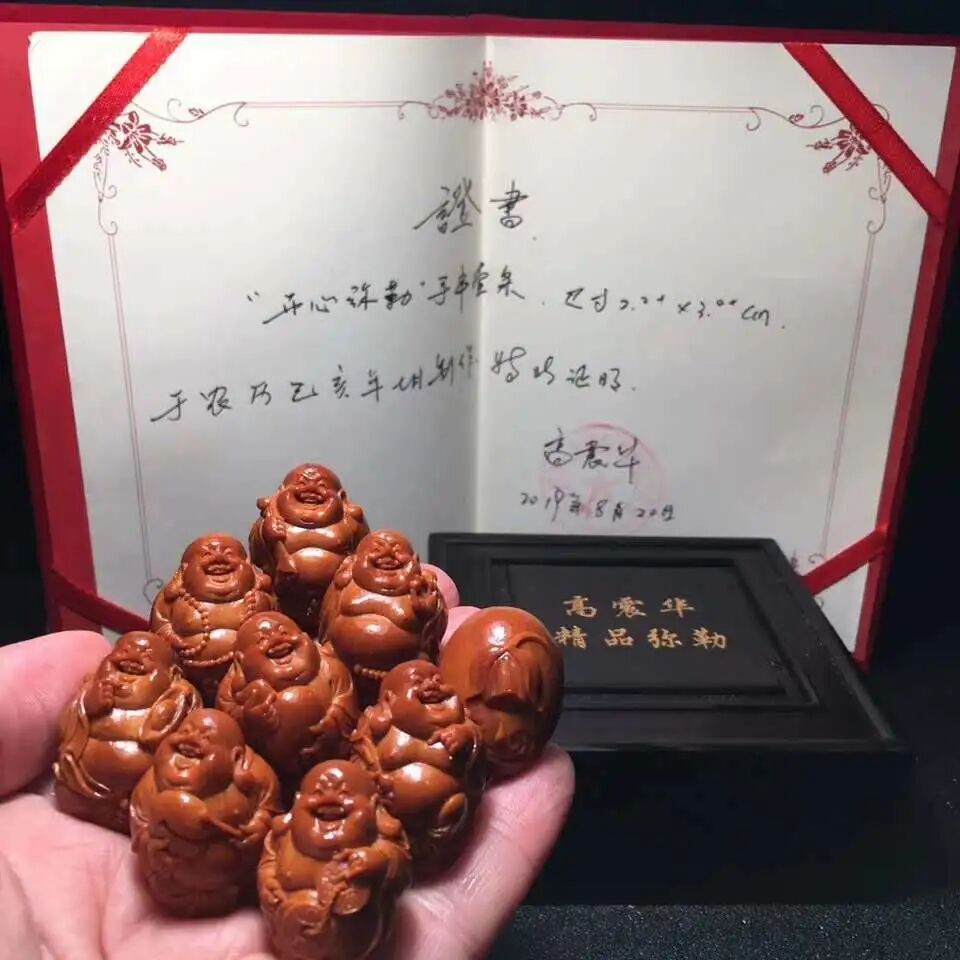 證書
"开心弥勒"手串壹条. 尺寸2.2 × 3.00 cm.
于农历己亥年制作 特此证明.
高震华
2019年8月20日
高震华
精品弥勒